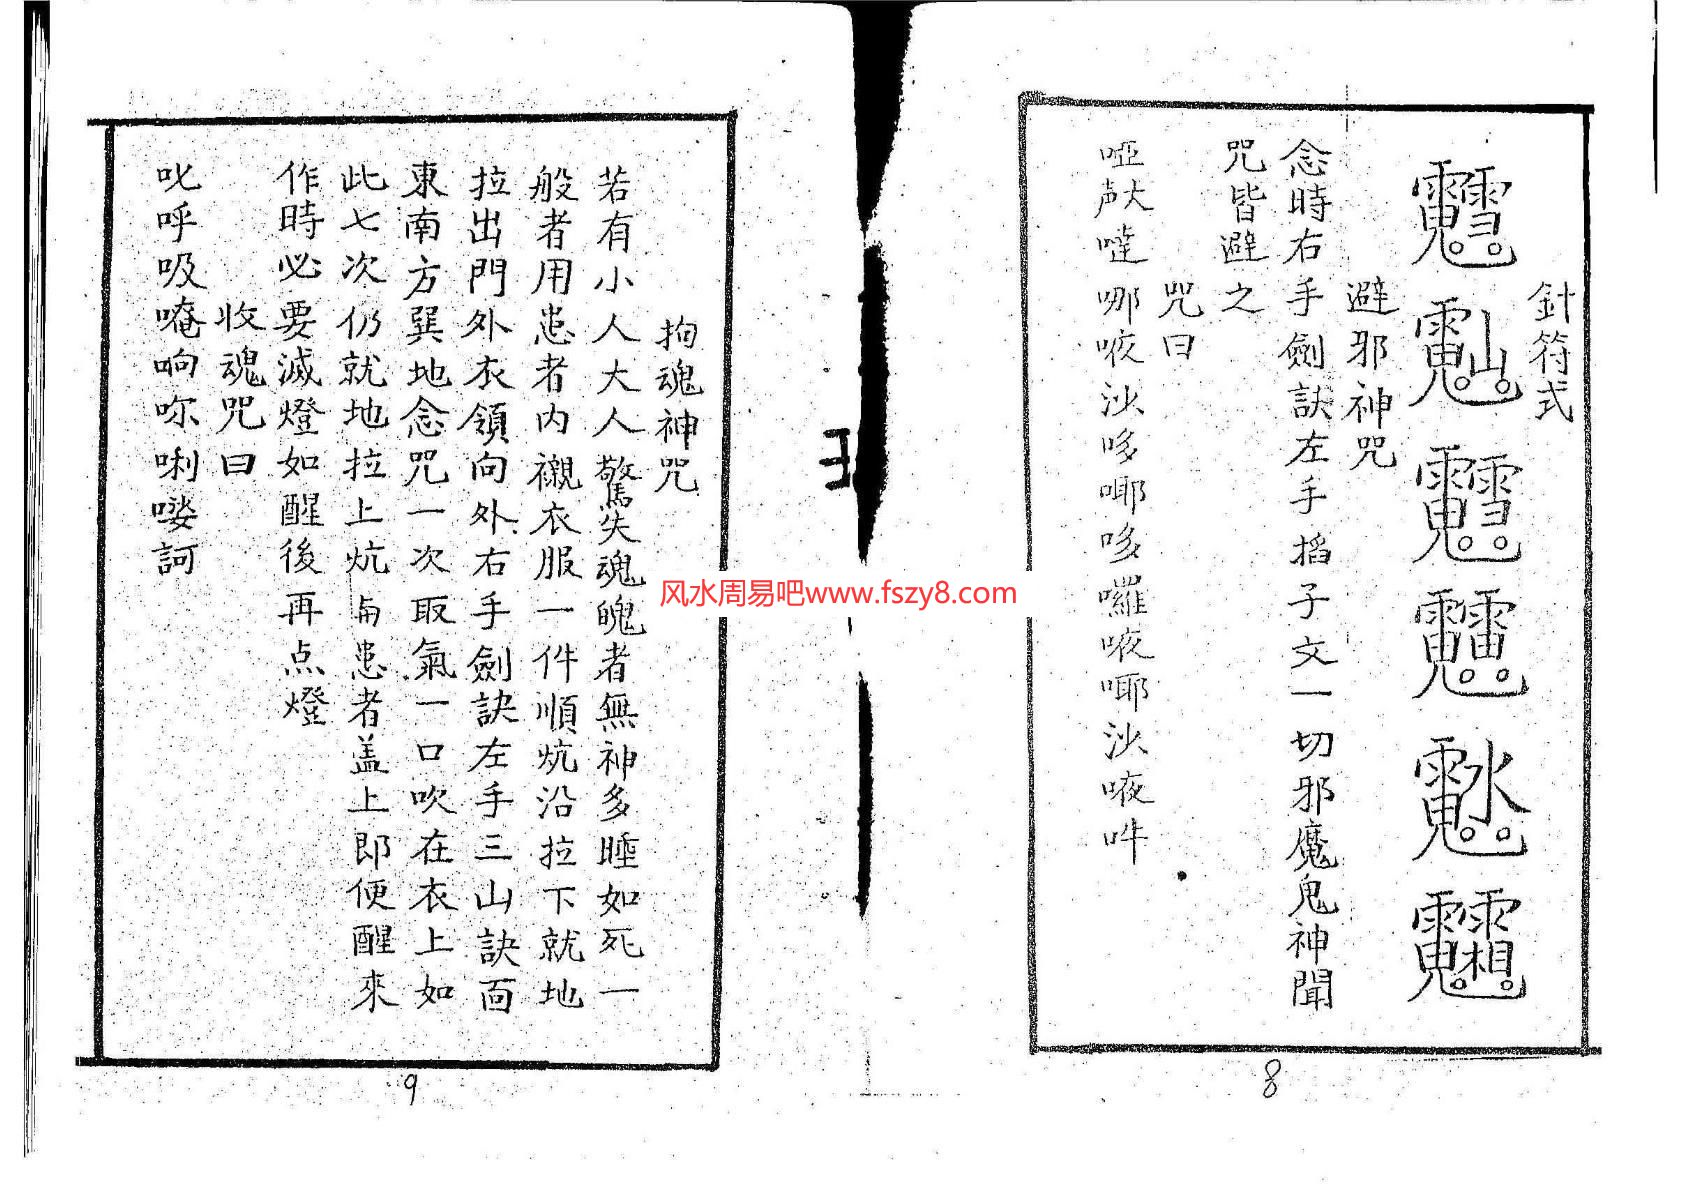 針符式
避邪神咒
念時右手劍訣左手掐子文一切邪魔鬼神聞
咒皆避之
咒曰
啞哪㖡沙哆㖿哆囉㖡㖿沙㖡吽
8
拘魂神咒
若有小人大人驚失魂魄者無神多睡如死一
般者用患者内襯衣服一件順炕沿拉下就地
拉出門外衣領向外右手劍訣左手三山訣面
東南方巽地念咒一次取氣一口吹在衣上如
此七次仍就地拉上炕与患者盖上即便醒來
作時必要滅燈如醒後再点燈
收魂咒曰
叱呼吸唵响㖇唎嘍訶
9
风水周易吧www.fszy8.com